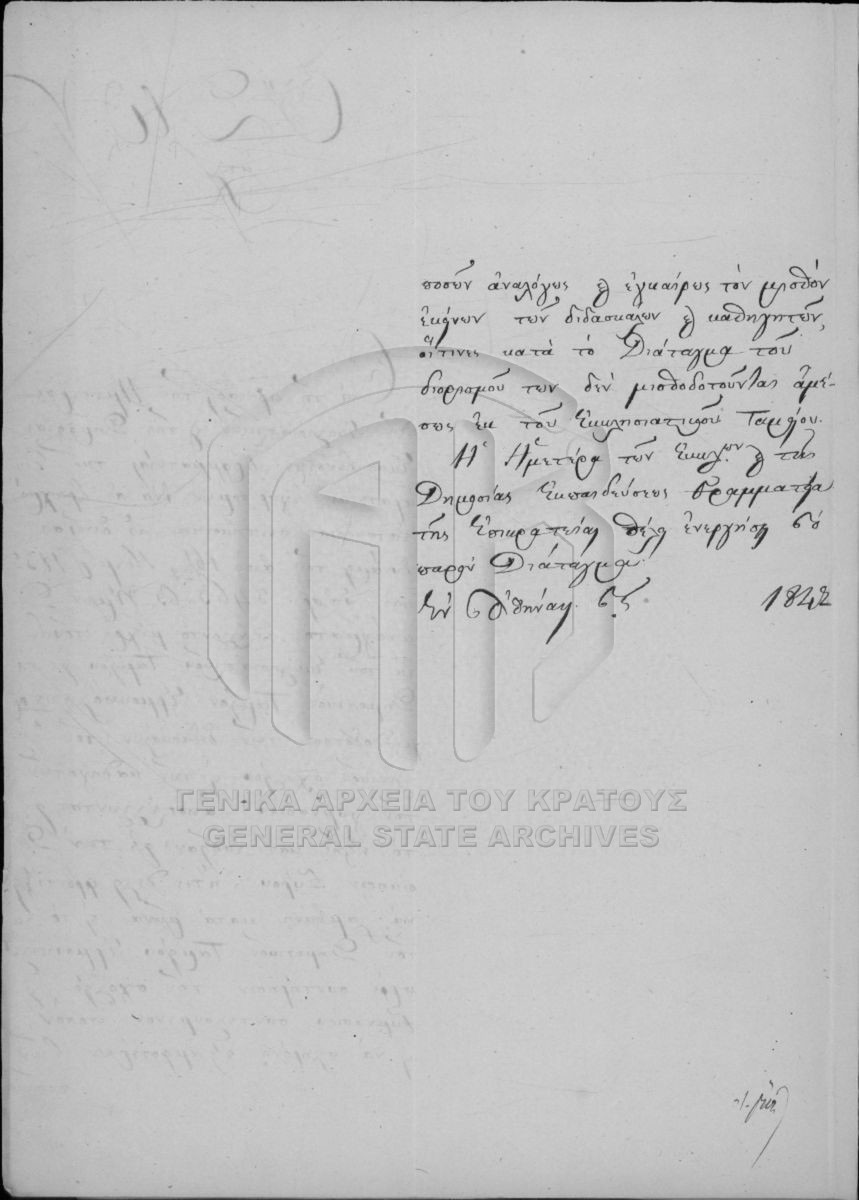 ποσῶν ἀναλόγως καὶ ἐγκαίρως τὸν μισθὸν
ἐκείνων τῶν διδασκάλων καὶ καθηγητῶν,
οἵτινες κατὰ τὸ Διάταγμα τοῦ
διορισμοῦ των δὲν μισθοδοτοῦνται ἀμέ-
σως ἐκ τοῦ Ἐκκλησιαστικοῦ Ταμείου.
Ἡ Ἡμετέρα τῶν Ἐκκλ.ων καὶ τῆς
Δημοσίας Ἐκπαιδεύσεως Γραμματεία
τῆς Ἐπικρατείας θέλει ἐνεργήσει τὸ
παρὸν Διάταγμα.
Ἐν Ἀθήναις τῇ 1842
ΓΕΝΙΚΑ ΑΡΧΕΙΑ ΤΟΥ ΚΡΑΤΟΥΣ
GENERAL STATE ARCHIVES